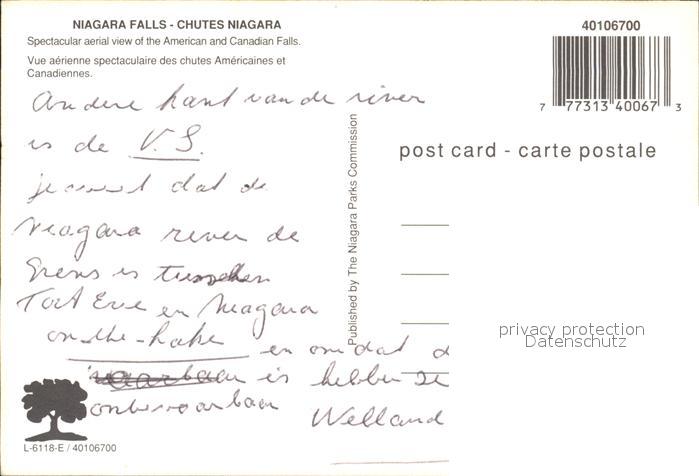 NIAGARA FALLS - CHUTES NIAGARA
Spectacular aerial view of the American and Canadian Falls.
Vue aérienne spectaculaire des chutes Américaines et
Canadiennes.
40106700
7 77313 40067 3
post card - carte postale
Published by The Niagara Parks Commission
Andere kant van de river
is de V.S.
je weet dat de
Niagara river de
Grens is tusschen
Fort Erie en Niagara
on-the-hake
en omdat d
is hebben ze
onbevaarbaar Welland
privacy protection
Datenschutz
L-6118-E / 40106700